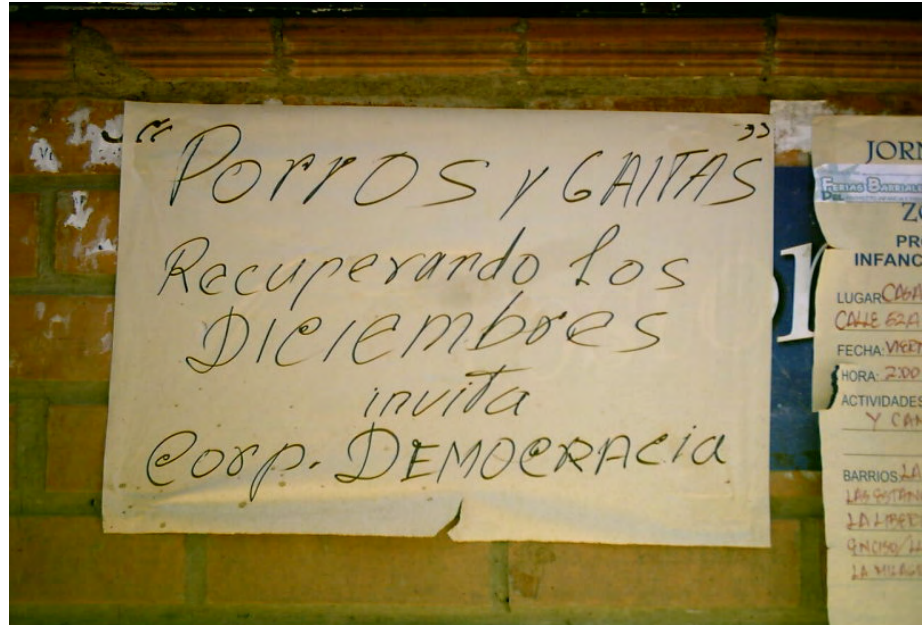 “ PORROS y GAITAS ”
Recuperando los
DICIEMbres
invita
Corp. DEMOCRACia
JORN
FERIAS BARRIALES
ZO
PR
INFANC
LUGAR
CALLE 52A
FECHA: VIER
HORA: 2:00
ACTIVIDADES
Y CAN
BARRIOS: LA
LA LIBER
LA MILAG